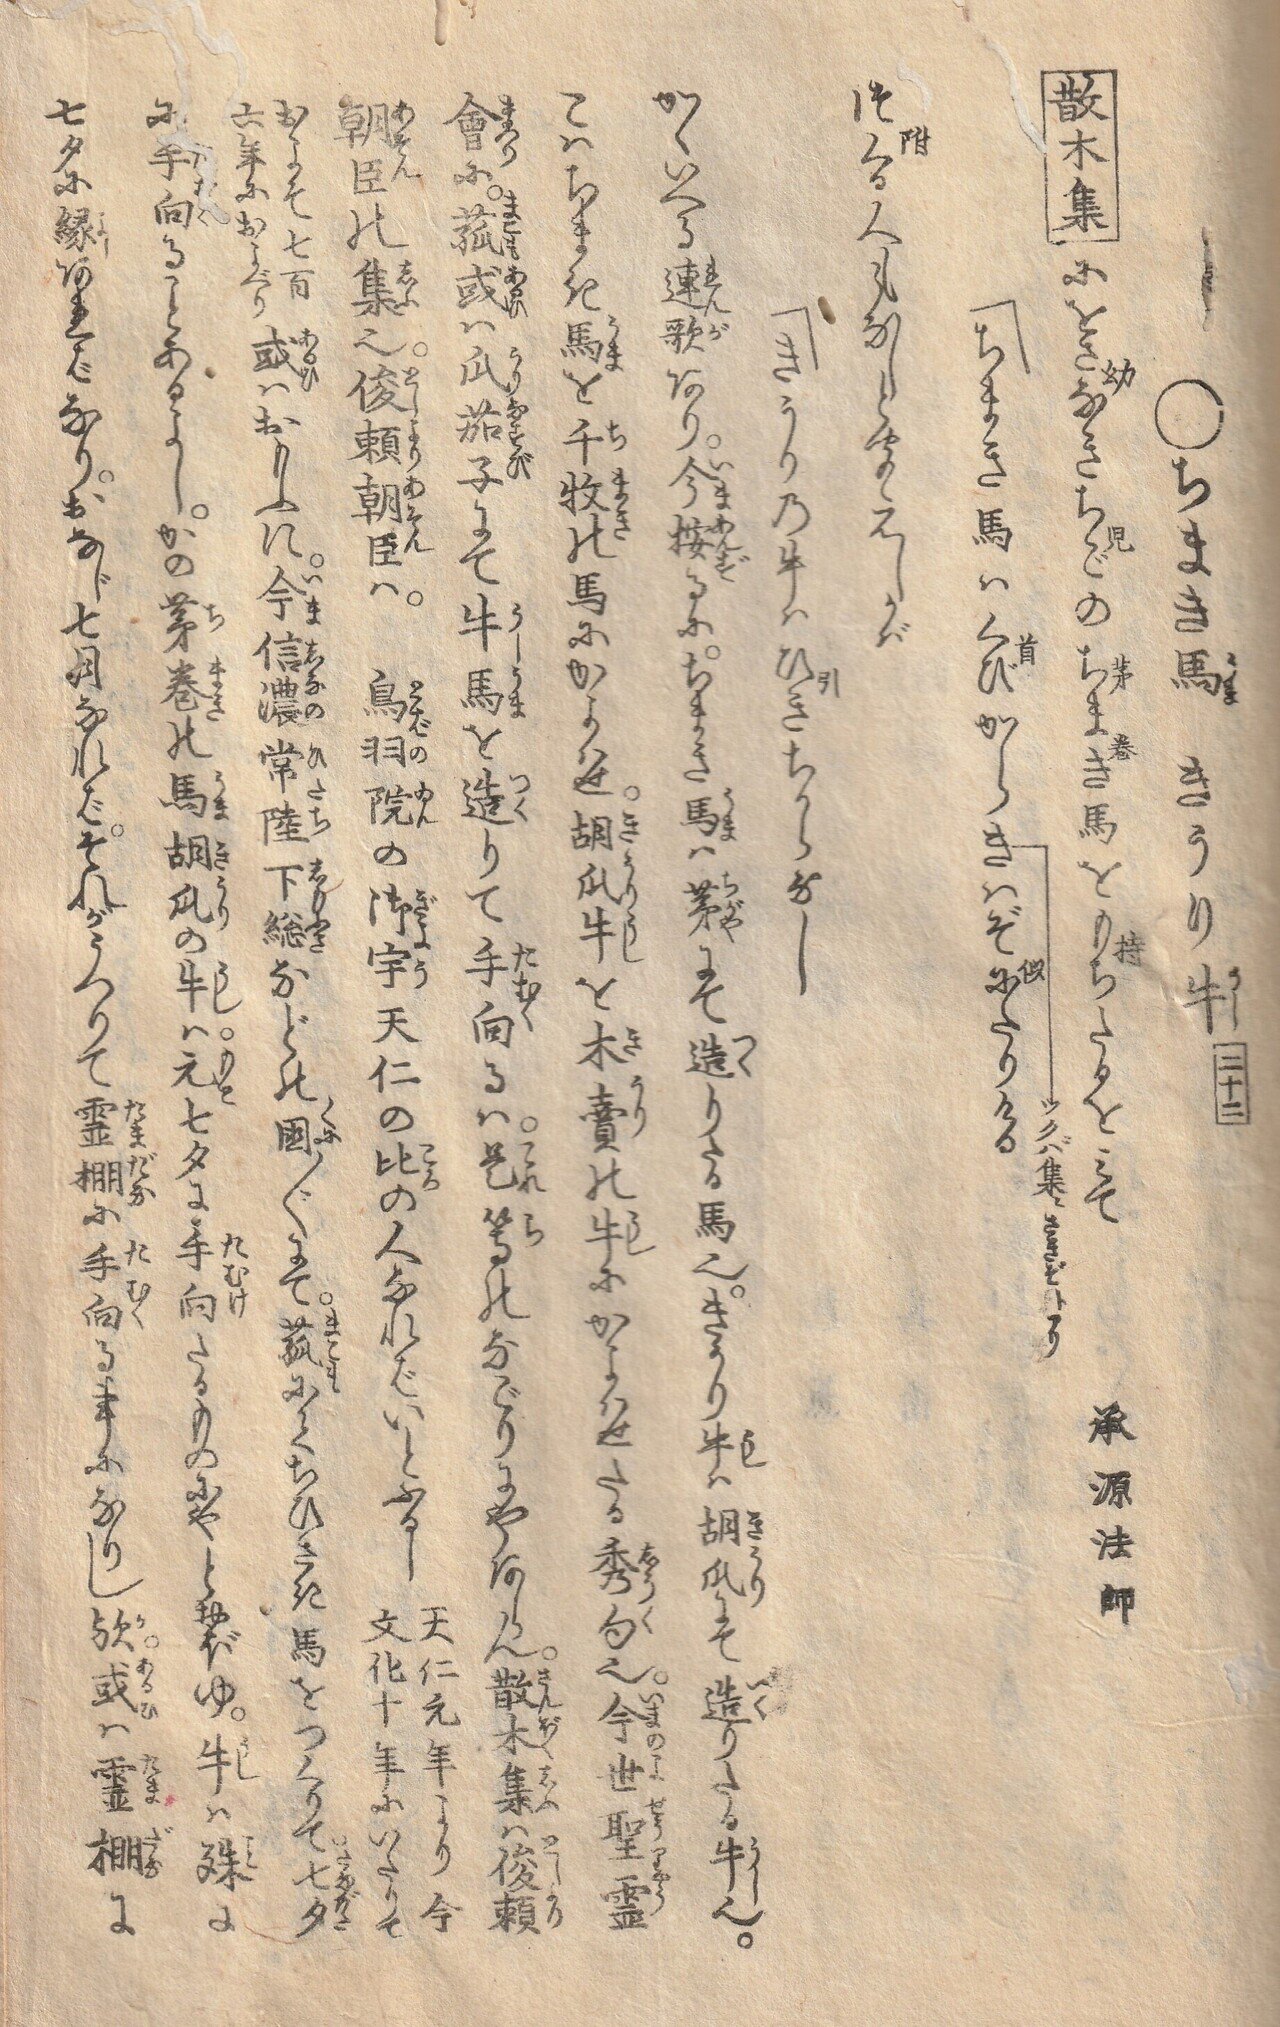 ○ちまき馬　きうり牛 二十二
散木集にをさなきちごのちまき馬をもちたるをみて
ちまき馬はくびからきはぞ似たりける　承源法師
ツクバ集ニ
つくる人もなしときこえしかば
きうり乃牛はひきちからなし
かくいへる連歌あり。今按るに。ちまき馬は茅にて造りたる馬也。きうり牛は胡瓜にて造りたる牛也。
こはちまき馬を千牧の馬にかよはせ。胡瓜牛を木賣の牛にかよはせたる秀句也。今世聖霊
會に。菰或は瓜茄子にて牛馬を造りて手向るは。是等のなごりにやあらん。散木集は俊頼
朝臣の集也。俊頼朝臣は。鳥羽院の御宇天仁の比の人なればいとふるし 天仁元年より今
文化十年にいたりて
およそ七百
六年におよべり 或はおもふに。今信濃常陸下総などの国〲にて。菰にてちひさき馬をつくりて七夕
に手向ることあるよし。かの茅巻の馬胡瓜の牛は。元七夕に手向たるものにやとおぼゆ。牛は殊に
七夕に縁あればなり。おなじ七月なれば。それがうつりて霊棚に手向る事になりし歟。或は霊棚に